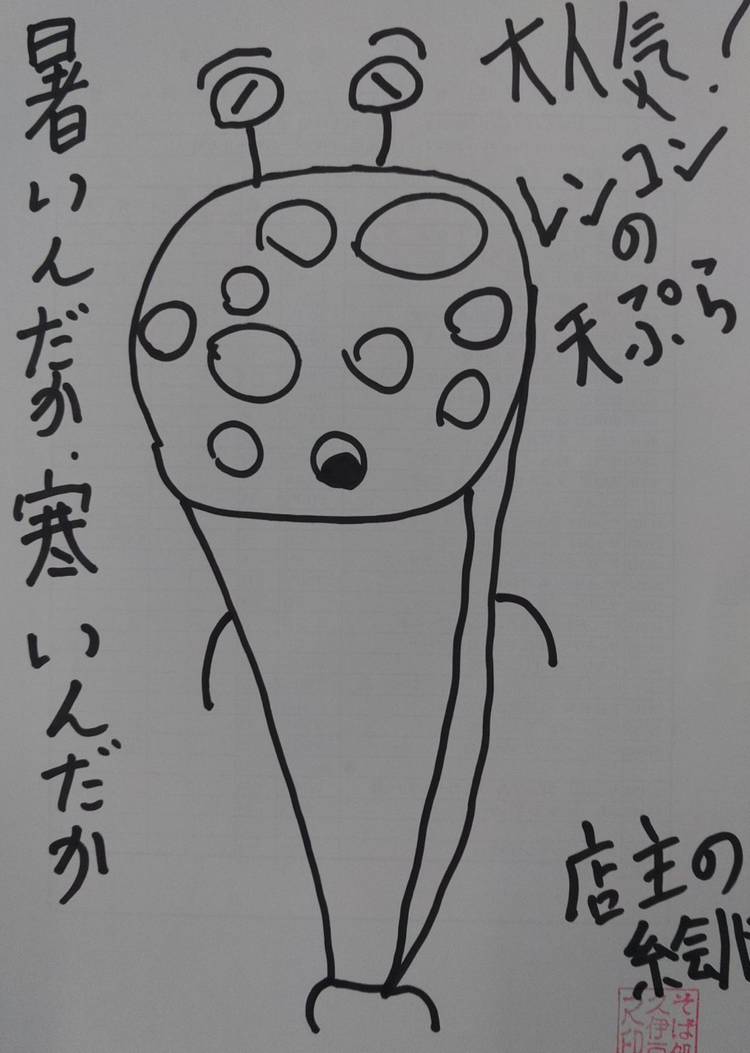 大人気!
レンコン
の
天ぷら
暑いんだか.寒いんだか
店主の
絵
そば処